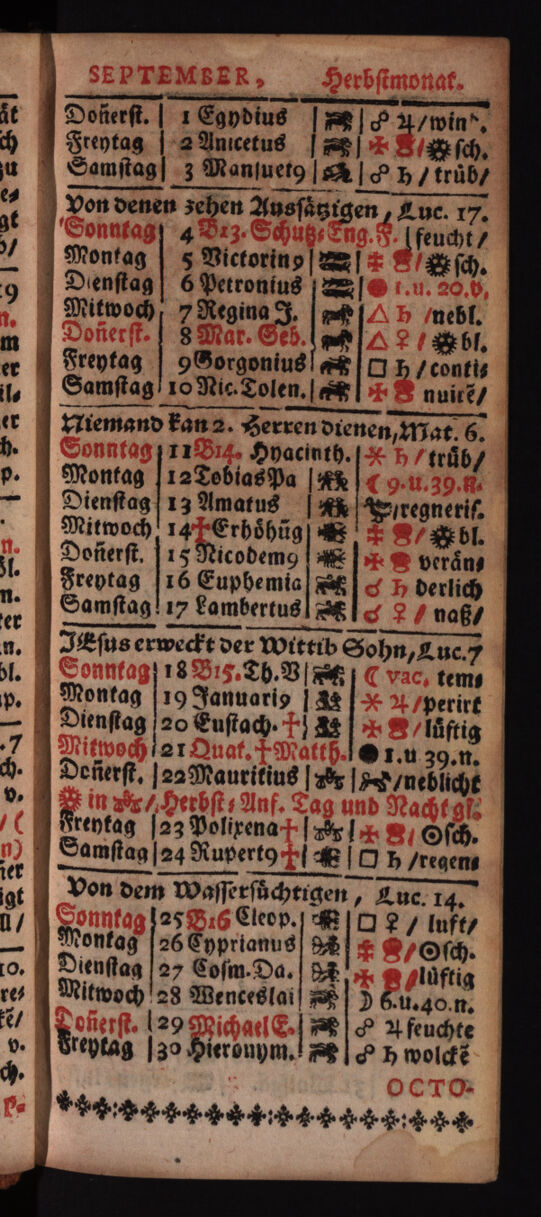 SEPTEMBER, Herbstmonat.
Don̄erst. 1 Egydius ☍ ♃/win
Freytag 2 Anicetus sch.
Samstag 3 Mansuet9 ☍ ♄/trüb/
Von denen zehen Aussätzigen, Luc. 17.
Sonntag 4 B13. Schutz-Eng.F. feucht/
Montag 5 Victorin9 sch.
Dienstag 6 Petronius ● 1.u. 20.v.
Mitwoch 7 Regina J. △ ♄ /nebl.
Don̄erst. 8 Mar. Geb. △ ♀/ bl.
Freytag 9 Gorgonius □ ♄/conti-
Samstag 10 Nic. Tolen. nuirē/
Niemand kan 2. Herren dienen, Mat. 6.
Sonntag 11 B14. Hyacinth. ⚹ ♄/trüb/
Montag 12 Tobias Pa ☾ 9.u.39.n.
Dienstag 13 Amatus /regneris.
Mitwoch 14 ✝ Erhöhūg / bl.
Don̄erst. 15 Nicodem9 verän-
Freytag 16 Euphemia ☌ ♄ derlich
Samstag 17 Lambertus ☌ ♀ / naß/
JEsus erweckt der Wittib Sohn, Luc. 7
Sonntag 18 B15. Th.V ☾ vac. tem-
Montag 19 Januari9 ⚹ ♃/perirt
Dienstag 20 Eustach. ✝ / lüftig
Mitwoch 21 Quat. ✝ Matth. ● 1.u 39.n.
Don̄erst. 22 Mauritius /neblicht
in /Herbst-Anf. Tag und Nacht gl.
Freytag 23 Polixena ✝ / ☉sch.
Samstag 24 Rupert9 ✝ □ ♄ /regen-
Von dem Wassersüchtigen, Luc. 14.
Sonntag 25 B16 Cleop. □ ♀ / luft/
Montag 26 Cyprianus /☉sch.
Dienstag 27 Cosm. Da. /lüftig
Mitwoch 28 Wenceslai ☽ 6.u.40.n.
Don̄erst. 29 Michael E. ☍ ♃ feuchte
Freytag 30 Hieronym. ☍ ♄ wolckē
OCTO-